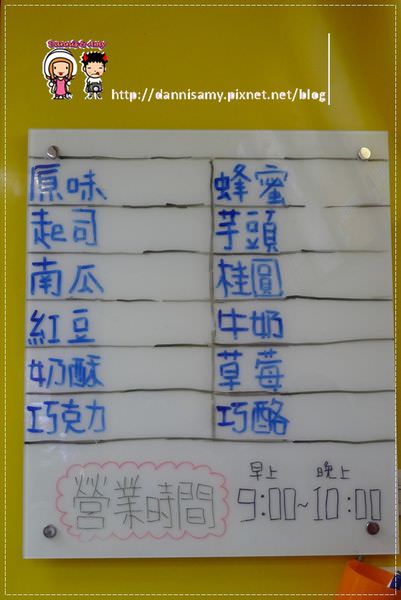 Dannis & Amy
http://dannisamy.pixnet.net/blog
原味 蜂蜜
起司 芋頭
南瓜 桂圓
紅豆 牛奶
奶酥 草莓
巧克力 巧酪
早上 晚上
營業時間 9:00~10:00